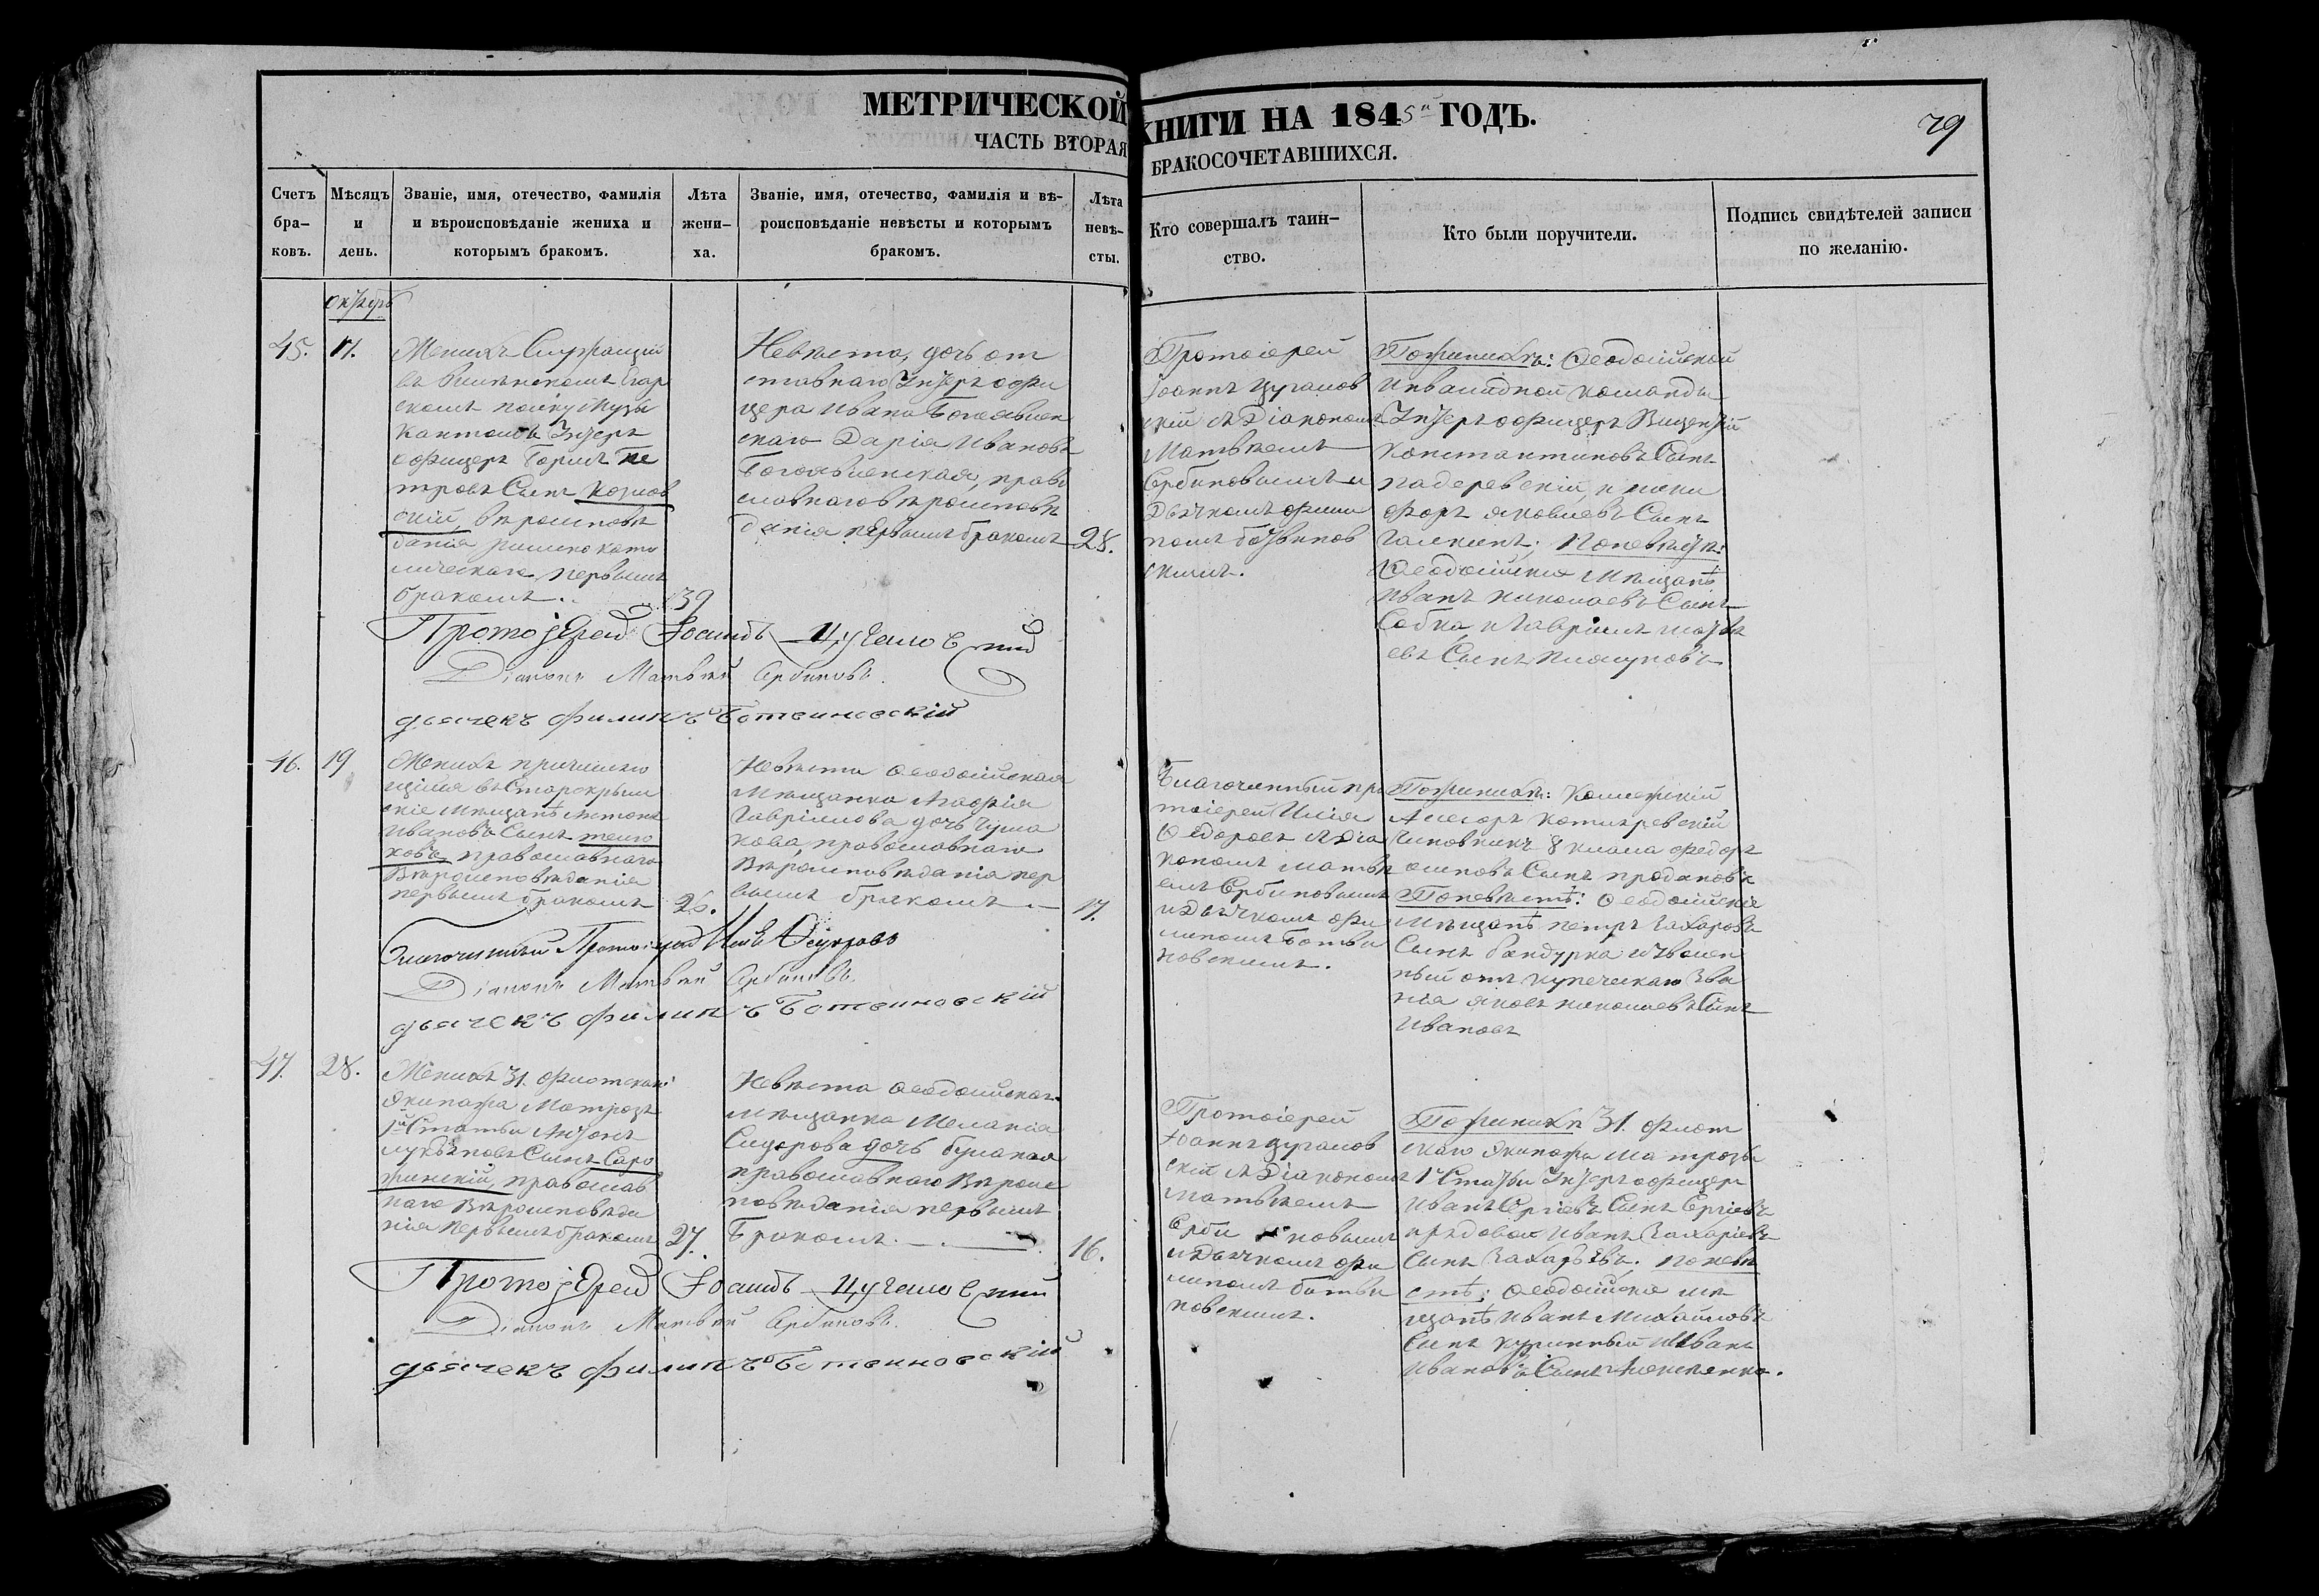 МЕТРИЧЕСКОЙ КНИГИ НА 1845й ГОДЪ.
79
ЧАСТЬ ВТОРАЯ БРАКОСОЧЕТАВШИХСЯ.
Счетъ бра-ковъ.
Мѣсяцъ и день.
Званіе, имя, отечество, фамилія
и вѣроисповѣданіе жениха и
которымъ бракомъ.
Лѣта жени-ха.
Званіе, имя, отечество, фамилія и вѣ-
роисповѣданіе невѣсты и которымъ
бракомъ.
Лѣта невѣ-сты.
Кто совершалъ таин-
ство.
Кто были поручители.
Подпись свидѣтелей записи
по желанію.
45.
Женихъ Служащій
полку Музы
кантомъ Унтеръ
офицеръ Пе
тровъ Сынъ Козлов
скій, вѣроисповѣ
данія римско като
лическаго первымъ
бракомъ..
39
Невѣста, дочь от
ставнаго Унтеръ офи
цера Ивана Богоявлен
скаго Дарія Иванова
Богоявленская, право
славнаго вѣроисповѣ
данія первымъ бракомъ
28.
Протоіерей
Іоаннъ Цугалов
скій съ Діакономъ
Матвѣемъ
Сербиновымъ и
Дьячкомъ Фили
помъ Ботвинов
скимъ.
По женихѣ: Ѳеодосійской
инвалидной команды
Унтеръ офицеръ
Константиновъ Сынъ
и ники
форъ яковлевъ Сынъ
По невѣстѣ:
Ѳеодосійскіе мѣщанѣ
Иванъ Николаевъ Сынъ
Собка, и Гавріилъ
евъ Сынъ
Протоіерей Іоаннъ Цугаловскій
Діаконъ Матвѣй Сербиновъ.
дьячекъ филипъ Ботвиновскій
46.
19
Женихъ причисляю
щійся въ Старокрым
скіе мѣщанѣ Антонъ
Ивановъ Сынъ
православнаго
Вѣроисповѣданія
первымъ бракомъ
26.
Невѣста Ѳеодосійская
Мѣщанка Агафія
Гавріилова дочь Чума
кова, православнаго
Вѣроисповѣданія пер
вымъ бракомъ
17.
Благочинный про
тоіерей Илія
Ѳедоровъ съ Діа
кономъ матвѣ
емъ Сербиновымъ
и Дьячкомъ Фи
липомъ Ботви
новскимъ.
По женихѣ: Коллежскій
Ассесоръ
Чиновникъ 8 класа Федоръ
осиповъ Сынъ продановъ
По невѣстѣ: Ѳеодосійскіе
Мѣщанѣ петръ Захаровъ
Сынъ бандурка и уволен
ный отъ купеческаго Зва
нія яковъ николаевъ Сынъ
Ивановъ
Благочинный Протоіерей Илія Ѳедоровъ
Діаконъ Матвѣй Сербиновъ.
дьячекъ филипъ Ботвиновскій
47.
28.
Женихъ 31. флотскаго
Экипажа Матрозъ
1й Статьи Антонъ
Сынъ Саро
жинскій, православ
наго Вѣроисповѣда
нія первымъ бракомъ
27.
Невѣста Ѳеодосійская
Мѣщанка Меланія
Сидорова дочь
православнаго Вѣроис
повѣданія первымъ
Бракомъ.
16.
Протоіерей
Іоаннъ Цугалов
скій съ Діакономъ
Матвѣемъ
Серби новымъ
и Дьячкомъ Фи
липомъ Ботви
новскимъ.
По женихѣ 31. флот
скаго Экипажа Матрозъ
1й Статьи Унтеръ офицеръ
Иванъ Сергіевъ Сынъ Сергіевъ
и рядовой Иванъ Захаріевъ
Сынъ Захарьевъ. По невѣ
стѣ: Ѳеодосійскіе мѣ
щанѣ Иванъ Михайловъ
Сынъ и Иванъ
Ивановъ Сынъ
Протоіерей Іоаннъ Цугаловскій
Діаконъ Матвѣй Сербиновъ.
дьячекъ филипъ Ботвиновскій